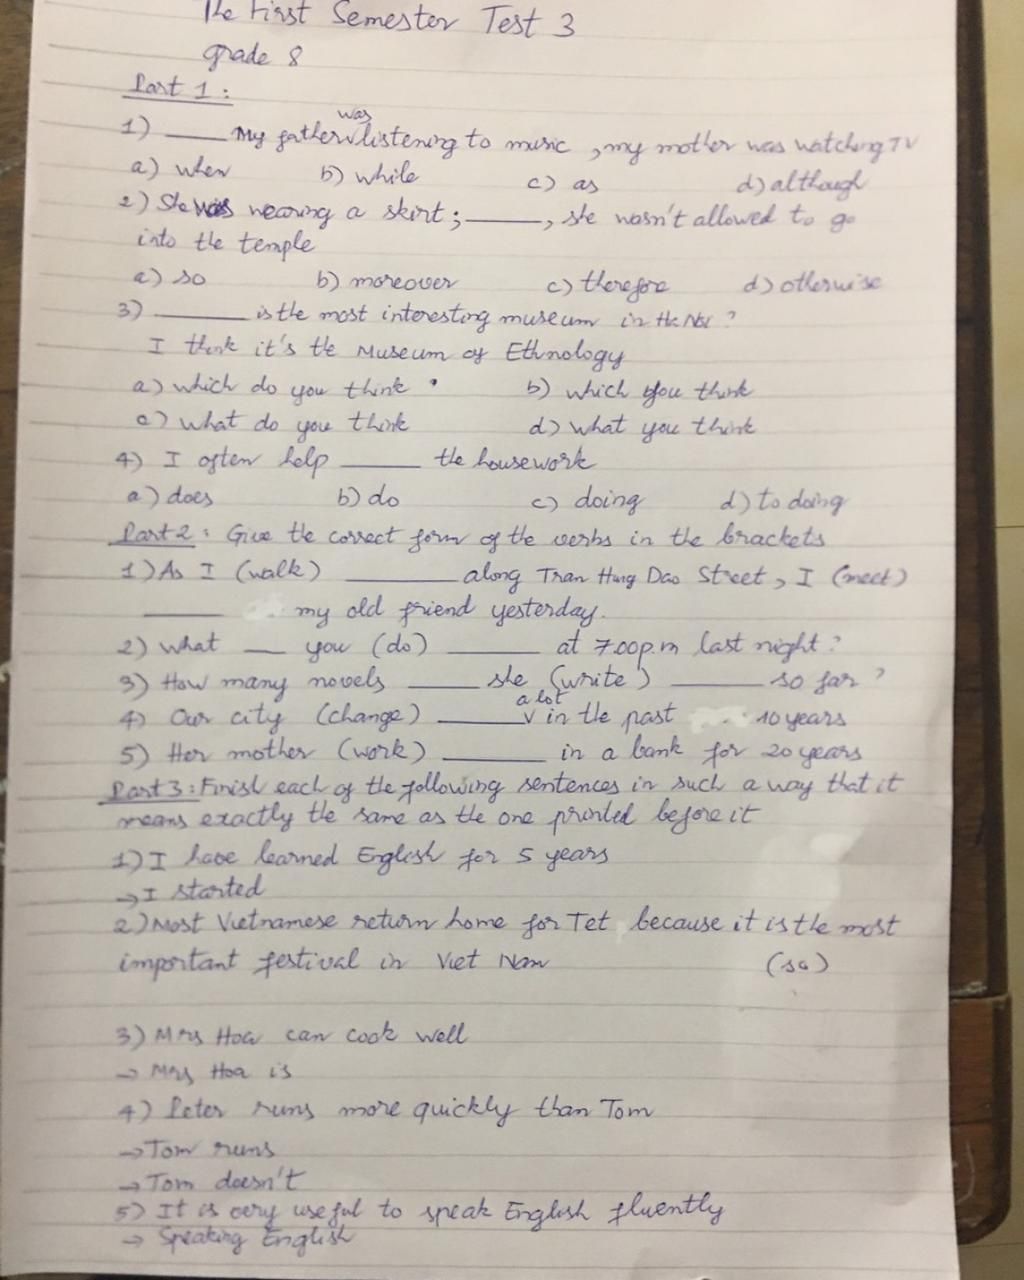 The First Semester Test 3
grade 8
Part 1 :
was
1) ____ My father v listening to music , my mother was watching TV
a) when b) while c) as d) although
2) She was wearing a skirt ; ____ , she wasn't allowed to go
into the temple
a) so b) moreover c) therefore d) otherwise
3) ____ is the most interesting museum in Ha Noi ?
I think it's the Museum of Ethnology
a) which do you think b) which you think
c) what do you think d) what you think
4) I often help ____ the housework
a) does b) do c) doing d) to doing
Part 2 : Give the correct form of the verbs in the brackets
1) As I (walk) ____ along Tran Hung Dao Street , I (meet)
____ my old friend yesterday.
2) What __ you (do) ____ at 7.00p.m last night ?
3) How many novels ____ she (write) ____ so far ?
a lot
4) Our city (change) ____ v in the past 10 years
5) Her mother (work) ____ in a bank for 20 years
Part 3 : Finish each of the following sentences in such a way that it
means exactly the same as the one printed before it
1) I have learned English for 5 years
→ I started
2) Most Vietnamese return home for Tet because it is the most
important festival in Viet Nam (so)
3) Mrs Hoa can cook well
→ Mrs Hoa is
4) Peter runs more quickly than Tom
→ Tom runs
→ Tom doesn't
5) It is very useful to speak English fluently
→ Speaking English